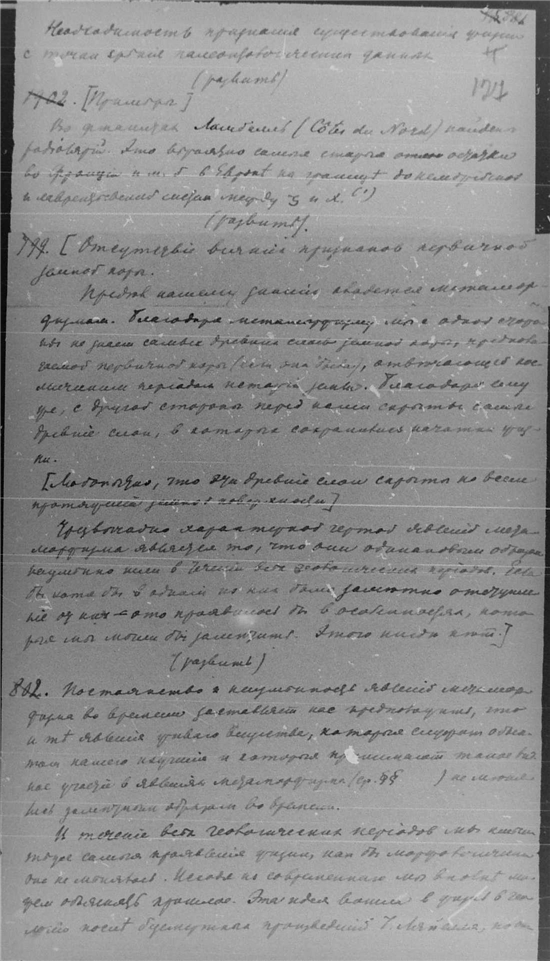 Необходимость признания существования жизни
с точки зрѣния палеонтологических данных
(развить)
127
1902. [Примѣры]
Во Ламбаллъ (Côtes du Nord) найдены
радіолярій. Это вѣроятно самые старые остатки
во Франціи и м. б. в Европѣ на границѣ докембрійских
и лаврентьевских между и
(развить).
799. [Отсутствіе всяких признаков первичной
земной коры.
Предѣл нашему знанію кладется метамор-
физмом. Благодаря метаморфизму мы с одной сторо-
ны не знаем самые древние слои земной коры, предпола-
гаемой первичной коры (если она была), отвѣчающей кос-
мическим періодам исторіи земли. Благодаря ему
же, с другой стороны перед нами сокрыты самые
древніе слои, в которых сохранились начатки жиз-
ни.
[Любопытно, что эти древніе слои скрыты на всем
протяженіи земной поверхности]
Чрезвычайно характерной чертой явленій мета-
морфизма является то, что они одинаковым образом
неизмѣнно шли в теченіи всѣх геологических періодов. Если
бы хотя бы в одном из них было замѣтно отступле-
ніе от них – это проявилось бы в особенностях, кото-
рыя мы могли бы замѣтить. Этого нигдѣ нѣт.]
(развить)
802. Постоянство и неизмѣнность явленій метамор-
физма во времени заставляет нас предполагать, что
и тѣ явленія живого вещества, которыя служат объек-
том нашего изученія и которыя принимают такое
участіе в явленіях метаморфизма (ср. §§ ) не мѣня-
лись замѣтным образом во времени.
В теченіе всѣх геологических періодов мы имѣем
тѣ же самыя проявленія жизни, как бы морфологически
она не мѣнялась. Исходя из современнаго мы вполнѣ мо-
жем объяснять прошлое. Эта идея вошла в жизнь в гео-
логію послѣ безсмертных произведеній Ч. Ляйелля,